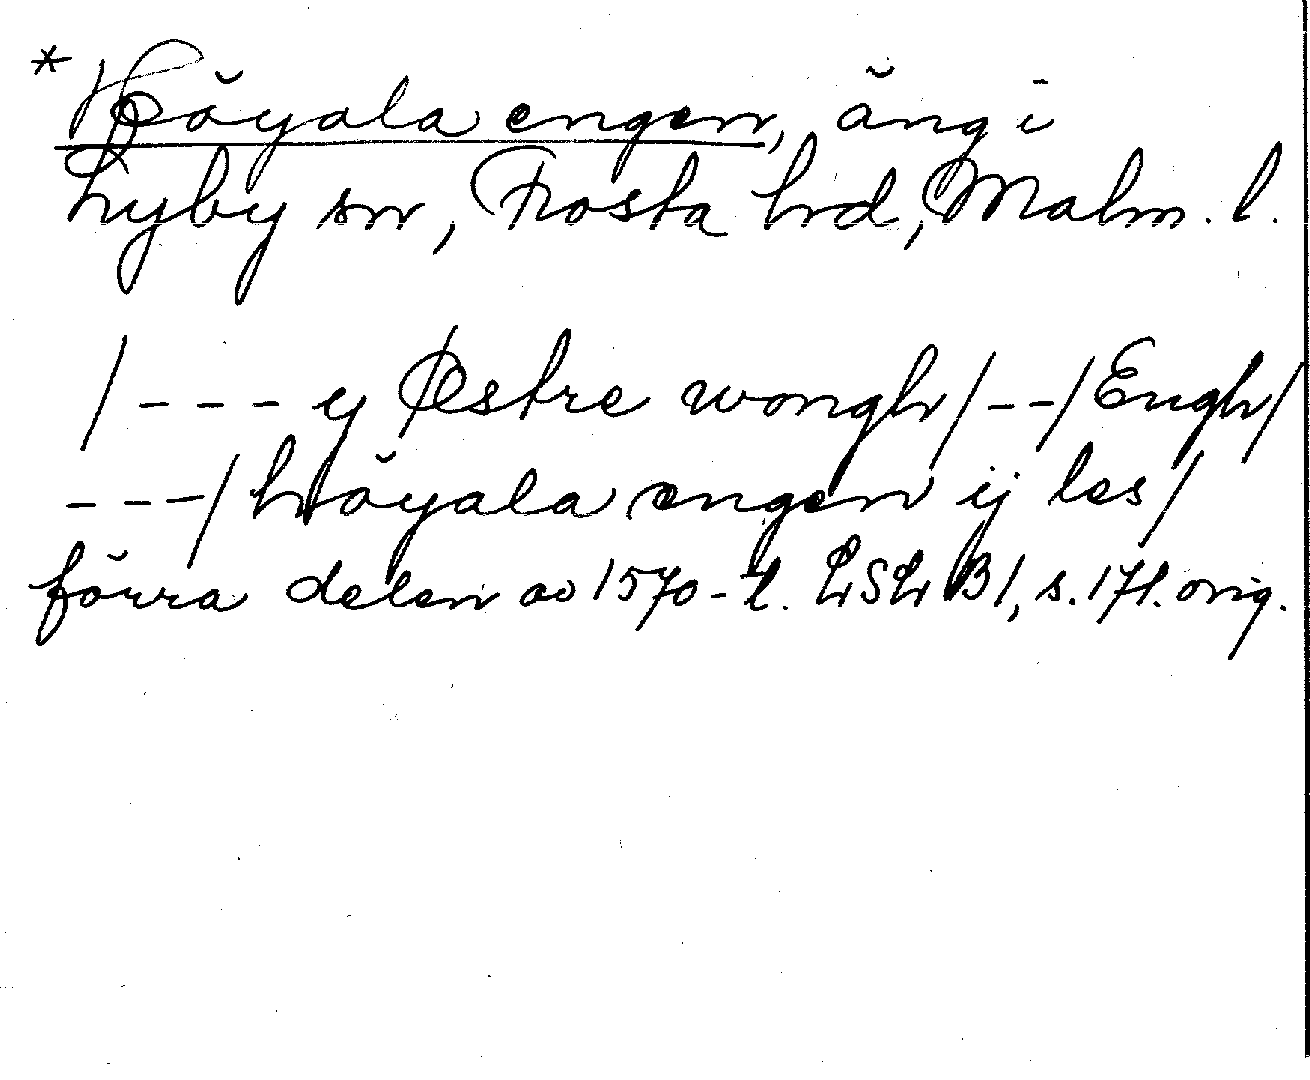 * Höyala engen, äng i
Hyby sn, Frosta hrd, Malm. l.
/ - - - y Østre wongh / - - / Engh /
- - - / höyala engen ij les /
förra delen av 1570-t. LSLr B1, s. 171. orig.